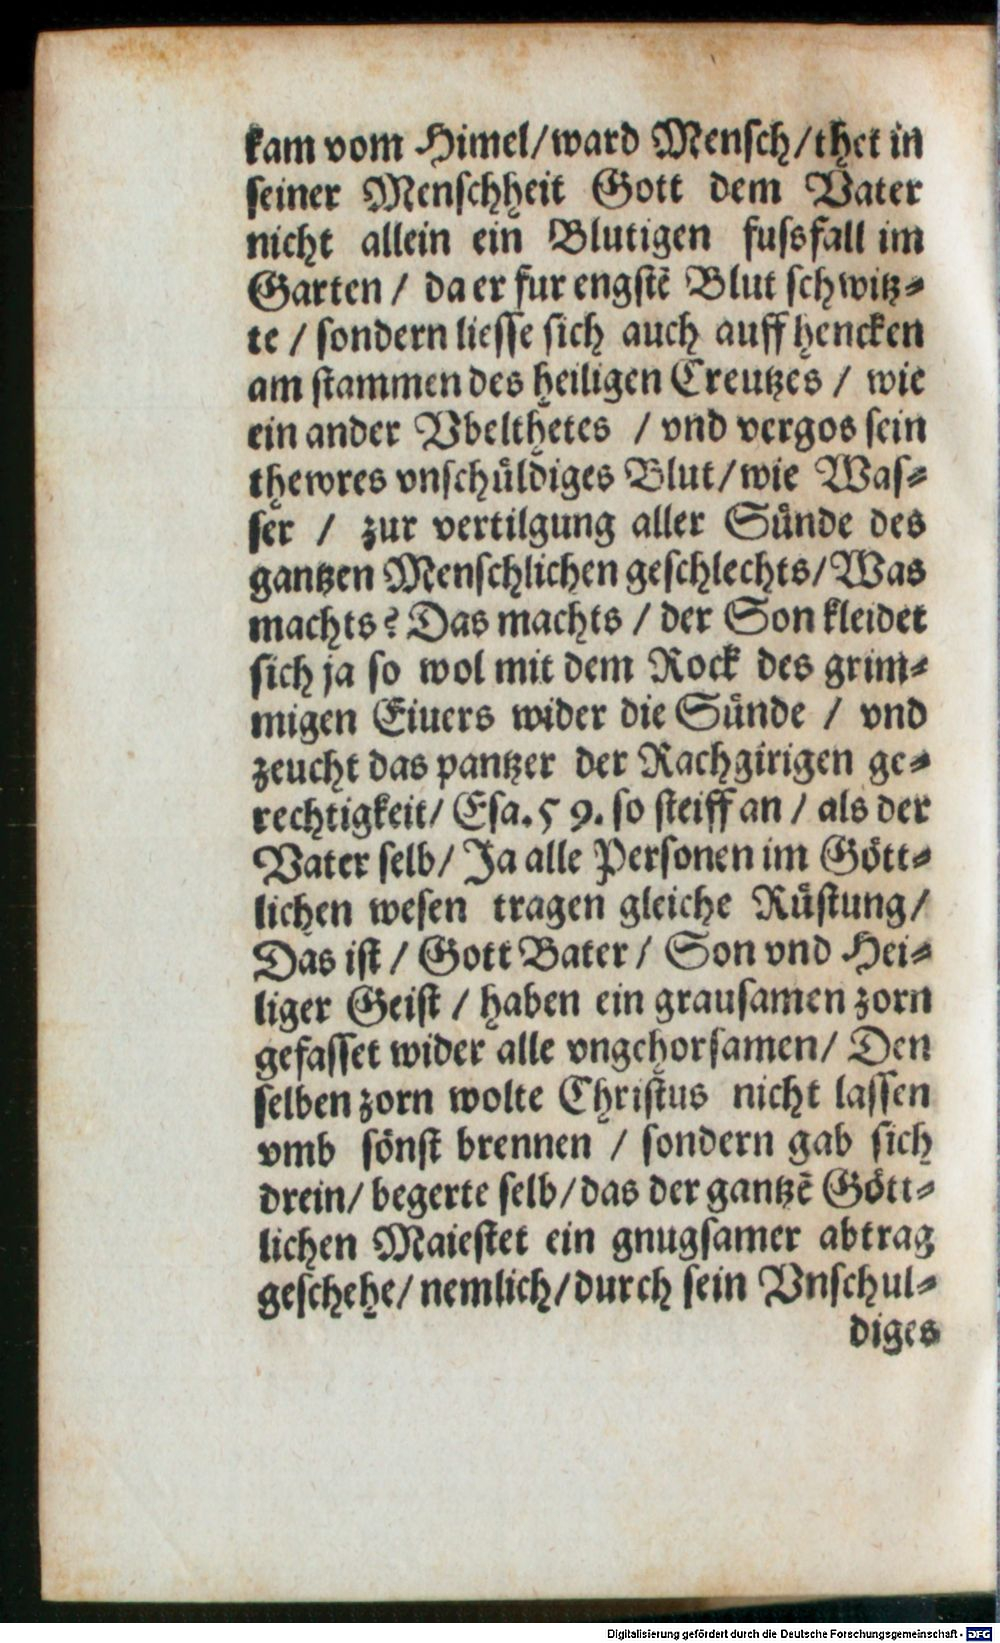 kam vom Himel/ward Mensch/thet in
seiner Menschheit Gott dem Vater
nicht allein ein Blutigen fussfall im
Garten / da er fur engstē Blut schwitz⸗
te / sondern liesse sich auch auff hencken
am stammen des heiligen Creutzes / wie
ein ander Vbelthetes / vnd vergos sein
thewres vnschuͤldiges Blut/wie Was⸗
ser / zur vertilgung aller Suͤnde des
gantzen Menschlichen geschlechts/Was
machts? Das machts / der Son kleidet
sich ja so wol mit dem Rock des grim⸗
migen Eiuers wider die Suͤnde / vnd
zeucht das pantzer der Rachgirigen ge⸗
rechtigkeit/ Esa. 59. so steiff an / als der
Vater selb/ Ja alle Personen im Goͤtt⸗
lichen wesen tragen gleiche Ruͤstung/
Das ist / Gott Vater / Son vnd Hei⸗
liger Geist / haben ein grausamen zorn
gefasset wider alle vngehorsamen/ Den
selben zorn wolte Christus nicht lassen
vmb soͤnst brennen / sondern gab sich
drein/ begerte selb/das der gantzē Goͤtt⸗
lichen Maiestet ein gnugsamer abtrag
geschehe/ nemlich/durch sein Vnschul⸗
diges
Digitalisierung gefördert durch die Deutsche Forschungsgemeinschaft - DFG